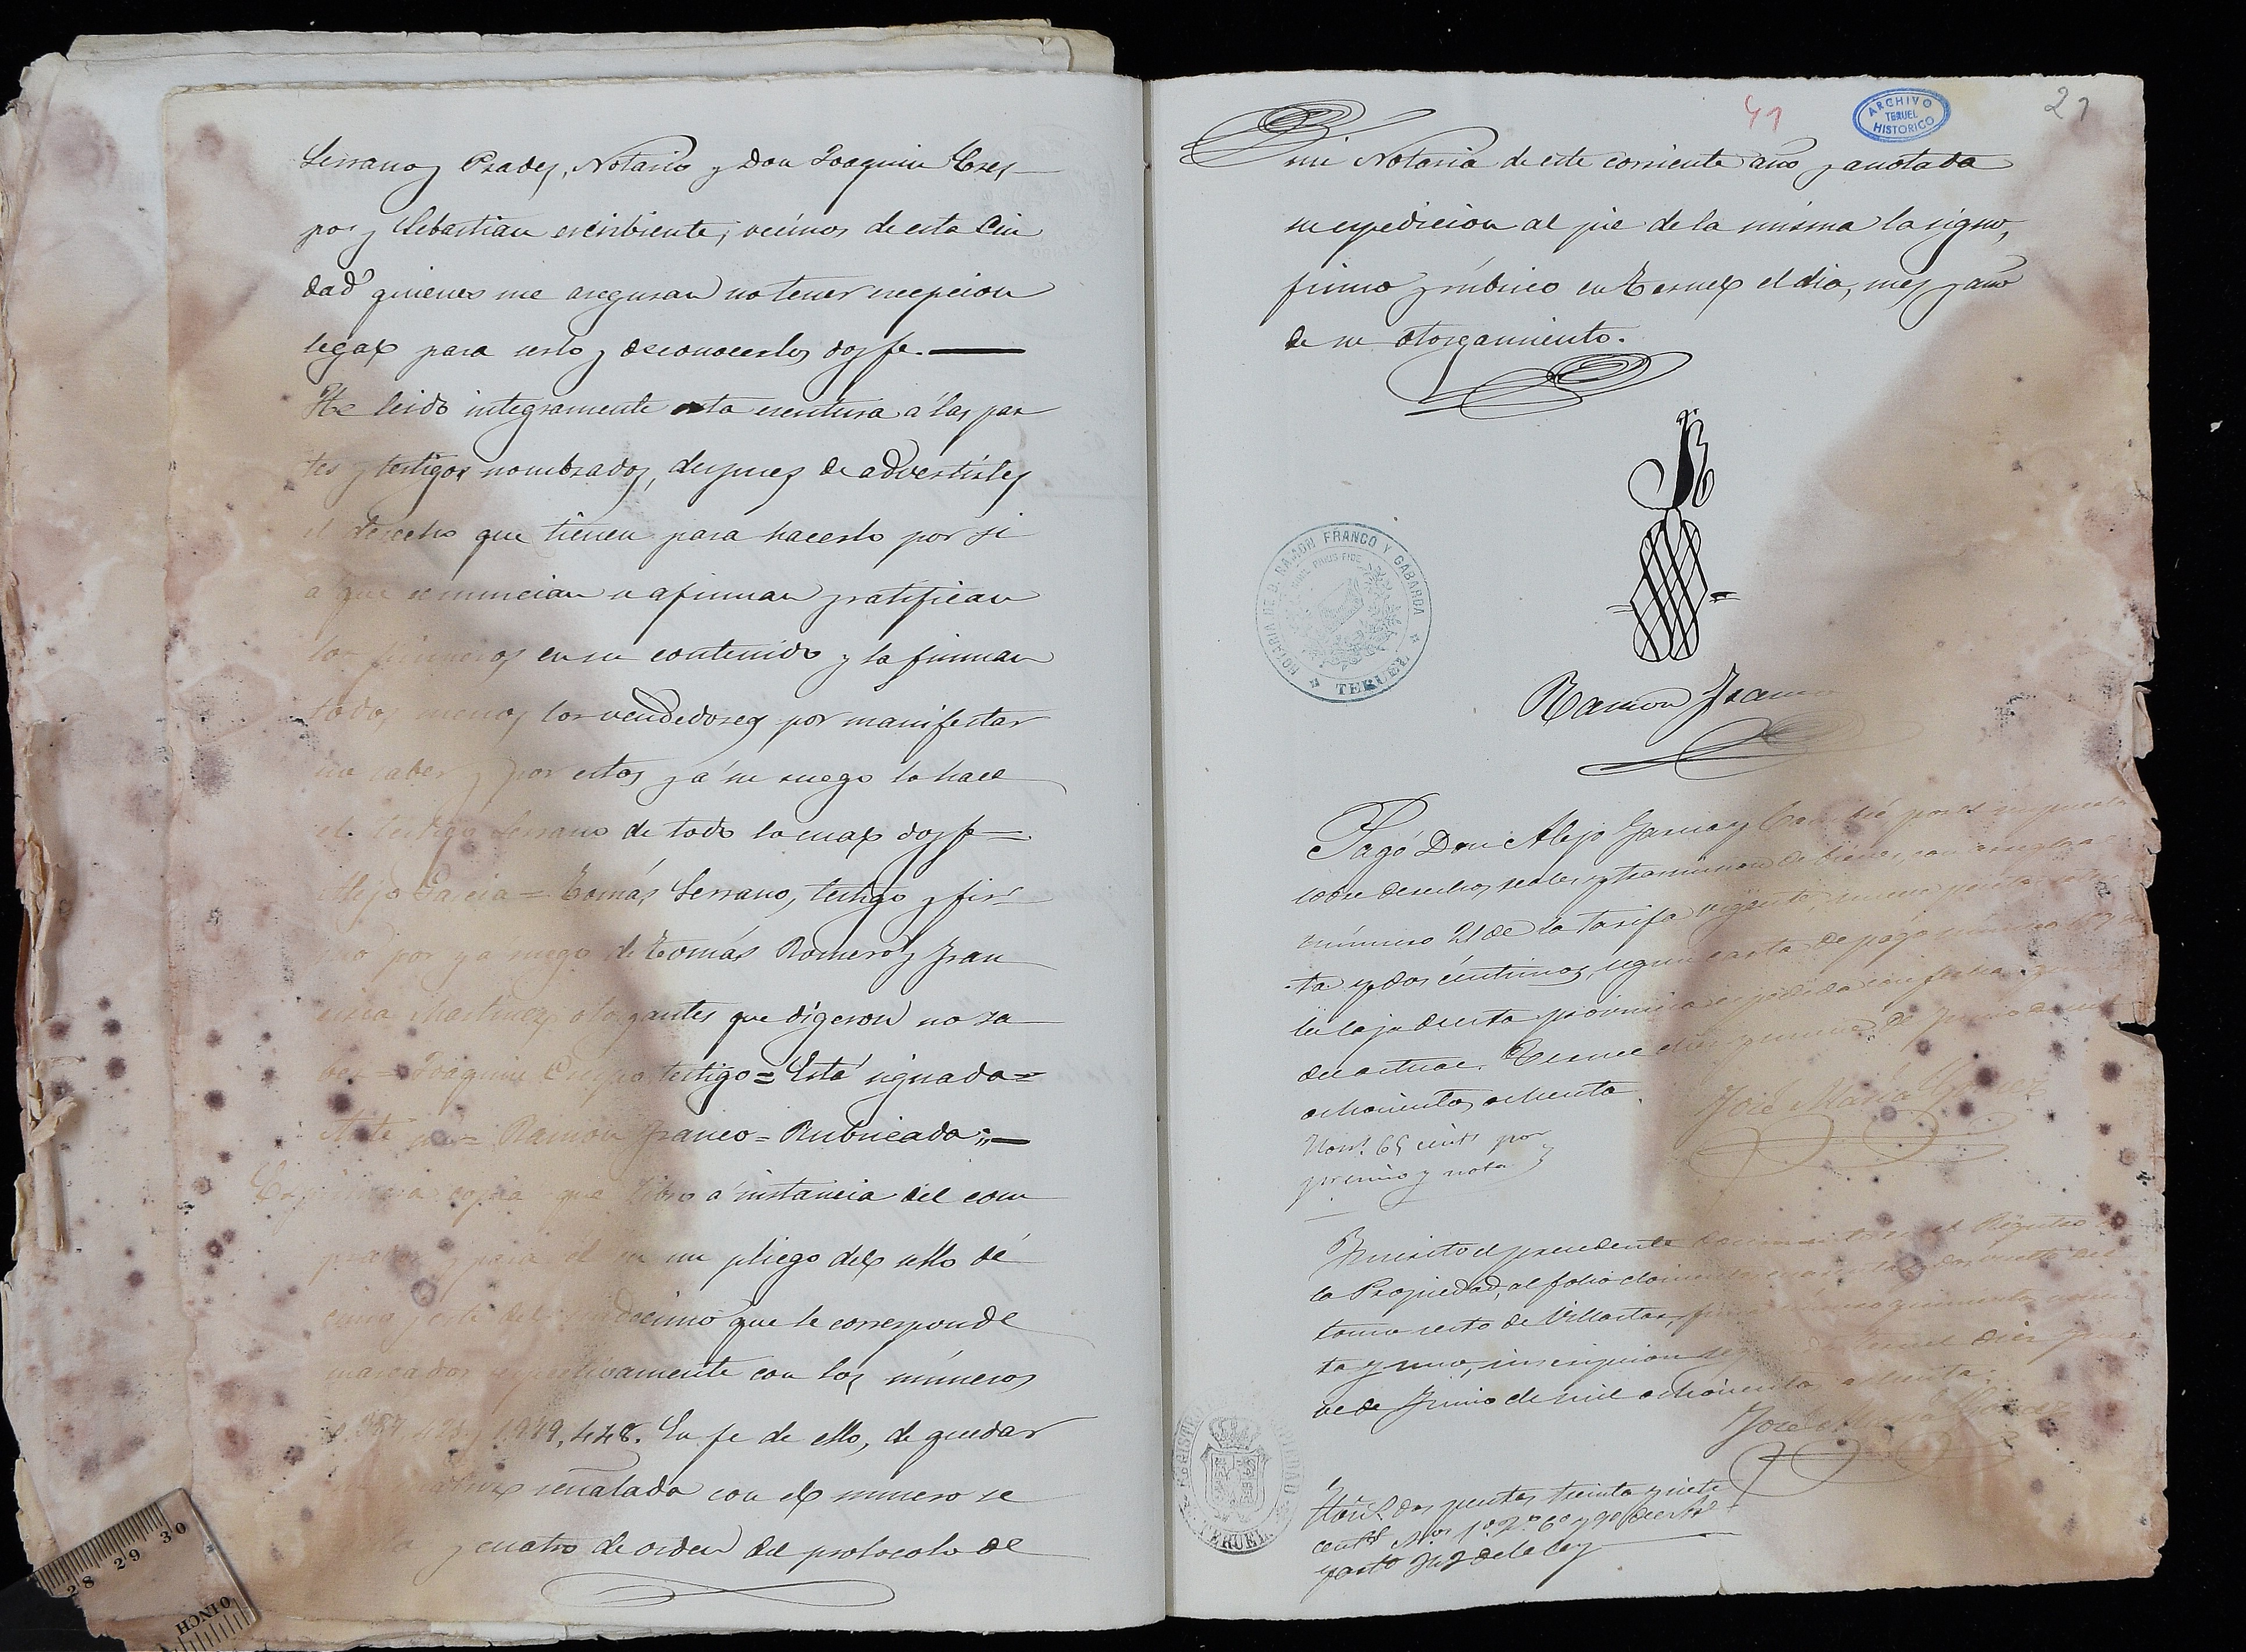 Serrano y Prades, Notario y Don Joaquin Cres
po y Sebastian escribiente, vecinos de esta Ciu
dad quienes me aseguran no tener excepcion
legal para serlo y de conocerlos doy fe.
He leido integramente esta escritura á las par
tes y testigos nombrados, despues de advertirles
el derecho que tienen para hacerlo por si
á que renuncian se afirman y ratifican
los primeros en su contenido y la firman
todos menos los vendedores por manifestar
no saber y por estos y á su ruego lo hace
el testigo Serrano de todo lo cual doy fe=
Alejo Garcia= Tomás Serrano, testigo y fir
mo por y á ruego de Tomás Romero y Fran
cisca Martinez otorgantes que digeron no sa
ber= Joaquin Crespo testigo= Está signada=
Ante mi= Ramon Franco= Rubricada;
Es primera copia que libro á instancia del com
prador y para él en un pliego del sello dé
cimo y este del undécimo que le corresponde
marcados respectivamente con los números
1.949,448. En fe de ello, de quedar
su matriz señalada con el número se
y cuatro de orden del protocolo de
41
ARCHIVO HISTORICO TERUEL
21
mi Notaria de este corriente año y anotada
su expedicion al pie de la misma la signo,
firmo y rúbrico en Teruel el dia, mes y año
de su otorgamiento.
NOTARIA DE D. RAMON FRANCO Y GABARDA
NIHIL PRIUS FIDE
TERUEL
Ramon Franco
Pagó Don Alejo Garcia y por el impuesto
sobre derechos reales y trasmision de bienes, con arreglo al
número 21 de la tarifa vigente, nueve pesetas
ta y dos céntimos, segun carta de pago número
la Caja de esta provincia expedida con fecha
del actual. Teruel diez y nueve de Junio de mil
ochocientos ochenta.
José Maria
Hons. 65 cents por
premio y nota
Inscrito el precedente documento en el Registro de
la Propiedad, al folio doscientos cuarenta y dos vuelto del
tomo sexto de Villastar, finca número quinientos
ta y uno, inscripcion segunda. Teruel diez y nue
ve de Junio de mil ochocientos ochenta.
José Maria
REGISTRO PROPIEDAD
TERUEL
Hons. dos pesetas treinta y siete
cents. Nos. 1º 2º 6º y 9º del Arl.
y arto 343 de la ley
28 29 30
INCH